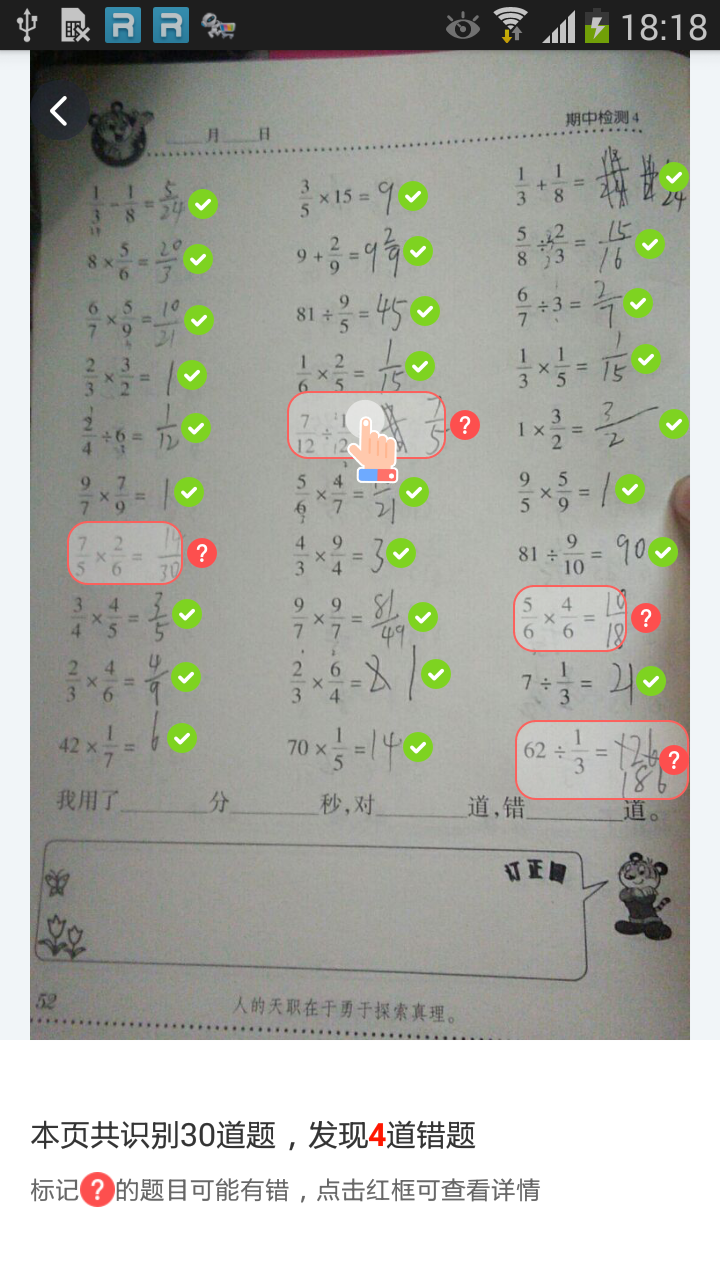 18:18
月 日
期中检测4
1/3 - 1/8 = 5/24
3/5 × 15 = 9
1/3 + 1/8 = /24
8 × 5/6 = 20/3
9 + 2/9 = 9 2/9
5/8 ÷ 2/3 = 15/16
6/7 × 5/9 = 10/21
81 ÷ 9/5 = 45
6/7 ÷ 3 = 2/7
2/3 × 3/2 = 1
1/6 × 2/5 = 1/15
1/3 × 1/5 = 1/15
2/4 ÷ 6 = 1/12
7/12 ÷ 7/5 ?
1 × 3/2 = 3/2
9/7 × 7/9 = 1
5/6 × 4/7 = /21
9/5 × 5/9 = 1
7/5 × 2/6 = 14/30 ?
4/3 × 9/4 = 3
81 ÷ 9/10 = 90
3/4 × 4/5 = 3/5
9/7 × 9/7 = 81/49
5/6 × 4/6 = 10/18 ?
2/3 × 4/6 = 4/9
2/3 × 6/4 = 1
7 ÷ 1/3 = 21
42 × 1/7 = 6
70 × 1/5 = 14
62 ÷ 1/3 = 126 186 ?
我用了______分______秒,对______道,错______道。
订正园
52
人的天职在于勇于探索真理。
本页共识别30道题，发现4道错题
标记?的题目可能有错，点击红框可查看详情